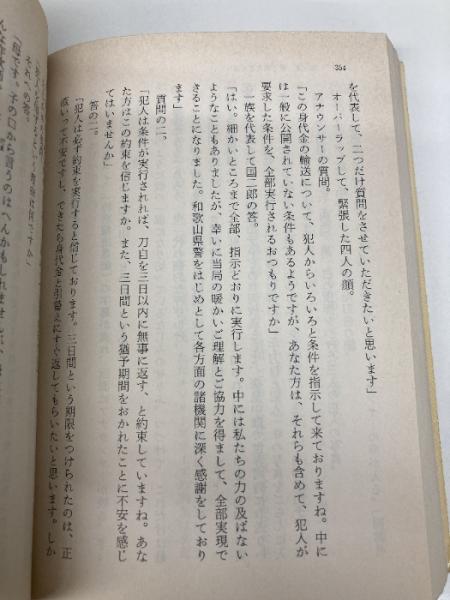 354
を代表して、二つだけ質問をさせていただきたいと思います」
オーバーラップして、緊張した四人の顔。
アナウンサーの質問。
「この身代金の輸送について、犯人からいろいろと条件を指示して来ておりますね。中に
は一般に公開されていない条件もあるようですが、あなた方は、それらも含めて、犯人が
要求した条件を、全部実行されるおつもりですか」
一族を代表して国二郎の答。
「はい。細かいところまで全部、指示どおりに実行します。中には私たちの力の及ばない
ようなこともありましたが、幸いに当局の暖かいご理解とご協力を得まして、全部実現で
きることになりました。和歌山県警をはじめとして各方面の諸機関に深く感謝をしており
ます」
質問の二。
「犯人は条件が実行されれば、刀自を三日以内に無事に返す、と約束していますね。あな
た方はこの約束を信じますか。また、三日間という猶予期間をおかれたことに不安を感じ
てはいませんか」
答の二。
「犯人は必ず約束を実行すると信じております。三日間という期限をつけられたのは、正
直いって不安ですし、できたら身代金と引替えにすぐ返してもらいたいと思います。しか
それへの答。
「母です。子の口から言うのはへんかもしれませんが、